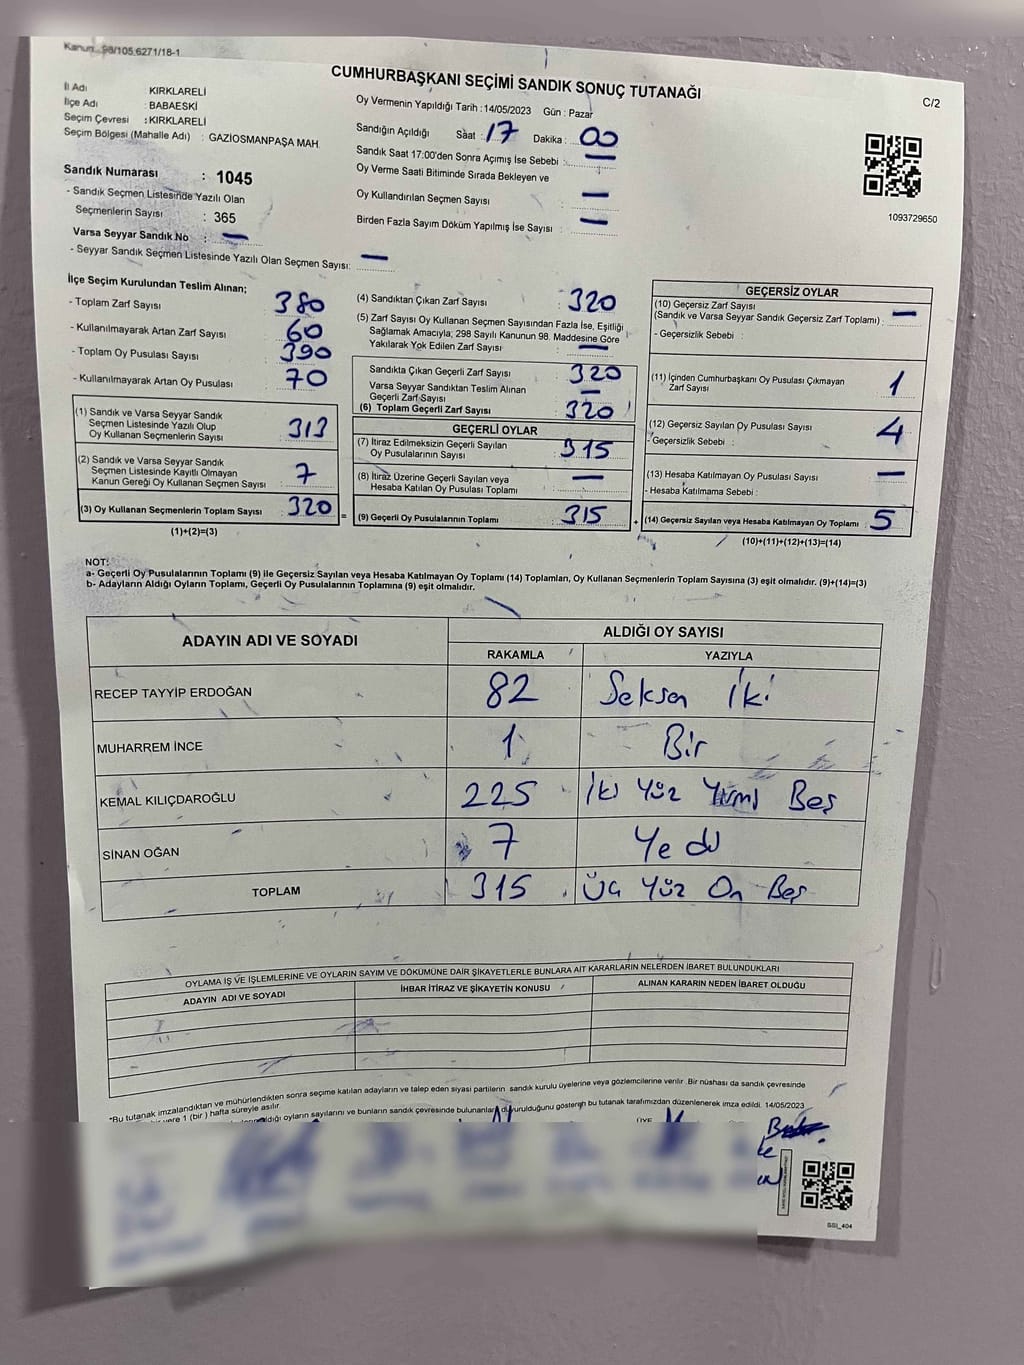 Kanun. 98/105,6271/18-1
CUMHURBAŞKANI SEÇİMİ SANDIK SONUÇ TUTANAĞI
C/2
İl Adı KIRKLARELİ
İlçe Adı : BABAESKİ
Seçim Çevresi : KIRKLARELİ
Seçim Bölgesi (Mahalle Adı) : GAZİOSMANPAŞA MAH.
Sandık Numarası : 1045
- Sandık Seçmen Listesinde Yazılı Olan
Seçmenlerin Sayısı : 365
Varsa Seyyar Sandık No : —
- Seyyar Sandık Seçmen Listesinde Yazılı Olan Seçmen Sayısı: —
Oy Vermenin Yapıldığı Tarih : 14/05/2023 Gün : Pazar
Sandığın Açıldığı Saat : 17 Dakika : 00
Sandık Saat 17:00'den Sonra Açımış İse Sebebi : —
Oy Verme Saati Bitiminde Sırada Bekleyen ve
Oy Kullandırılan Seçmen Sayısı —
Birden Fazla Sayım Döküm Yapılmış İse Sayısı : —
1093729650
İlçe Seçim Kurulundan Teslim Alınan;
- Toplam Zarf Sayısı 380
- Kullanılmayarak Artan Zarf Sayısı : 60
- Toplam Oy Pusulası Sayısı : 390
- Kullanılmayarak Artan Oy Pusulası : 70
(1) Sandık ve Varsa Seyyar Sandık
Seçmen Listesinde Yazılı Olup
Oy Kullanan Seçmenlerin Sayısı : 313
(2) Sandık ve Varsa Seyyar Sandık
Seçmen Listesinde Kayıtlı Olmayan
Kanun Gereği Oy Kullanan Seçmen Sayısı : 7
(3) Oy Kullanan Seçmenlerin Toplam Sayısı : 320 =
(1)+(2)=(3)
(4) Sandıktan Çıkan Zarf Sayısı : 320
(5) Zarf Sayısı Oy Kullanan Seçmen Sayısından Fazla İse, Eşitliği
Sağlamak Amacıyla, 298 Sayılı Kanunun 98. Maddesine Göre
Yakılarak Yok Edilen Zarf Sayısı : —
Sandıkta Çıkan Geçerli Zarf Sayısı : 320
Varsa Seyyar Sandıktan Teslim Alınan
Geçerli Zarf Sayısı : —
(6) Toplam Geçerli Zarf Sayısı : 320
GEÇERLİ OYLAR
(7) İtiraz Edilmeksizin Geçerli Sayılan
Oy Pusulalarının Sayısı : 315
(8) İtiraz Üzerine Geçerli Sayılan veya
Hesaba Katılan Oy Pusulası Toplamı : —
(9) Geçerli Oy Pusulalarının Toplamı : 315 +
GEÇERSİZ OYLAR
(10) Geçersiz Zarf Sayısı
(Sandık ve Varsa Seyyar Sandık Geçersiz Zarf Toplamı) : —
- Geçersizlik Sebebi :
(11) İçinden Cumhurbaşkanı Oy Pusulası Çıkmayan
Zarf Sayısı : 1
(12) Geçersiz Sayılan Oy Pusulası Sayısı : 4
- Geçersizlik Sebebi :
(13) Hesaba Katılmayan Oy Pusulası Sayısı : —
- Hesaba Katılmama Sebebi :
(14) Geçersiz Sayılan veya Hesaba Katılmayan Oy Toplamı : 5
(10)+(11)+(12)+(13)=(14)
NOT:
a- Geçerli Oy Pusulalarının Toplamı (9) ile Geçersiz Sayılan veya Hesaba Katılmayan Oy Toplamı (14) Toplamları, Oy Kullanan Seçmenlerin Toplam Sayısına (3) eşit olmalıdır. (9)+(14)=(3)
b- Adayların Aldığı Oyların Toplamı, Geçerli Oy Pusulalarının Toplamına (9) eşit olmalıdır.
ADAYIN ADI VE SOYADI ALDIĞI OY SAYISI
RAKAMLA YAZIYLA
RECEP TAYYİP ERDOĞAN 82 Seksen İki
MUHARREM İNCE 1 Bir
KEMAL KILIÇDAROĞLU 225 İki Yüz Yirmi Beş
SİNAN OĞAN 7 Yedi
TOPLAM 315 Üç Yüz On Beş
OYLAMA İŞ VE İŞLEMLERİNE VE OYLARIN SAYIM VE DÖKÜMÜNE DAİR ŞİKAYETLERLE BUNLARA AİT KARARLARIN NELERDEN İBARET BULUNDUKLARI
ADAYIN ADI VE SOYADI İHBAR İTİRAZ VE ŞİKAYETİN KONUSU ALINAN KARARIN NEDEN İBARET OLDUĞU
*Bu tutanak imzalandıktan ve mühürlendikten sonra seçime katılan adayların ve talep eden siyasi partilerin sandık kurulu üyelerine veya gözlemcilerine verilir. Bir nüshası da sandık çevresinde
yere 1 (bir) hafta süreyle asılır.
aldığı oyların sayılarını ve bunların sandık çevresinde bulunanlara duyurulduğunu gösteren bu tutanak tarafımızdan düzenlenerek imza edildi. 14/05/2023
ÜYE
SSI_404